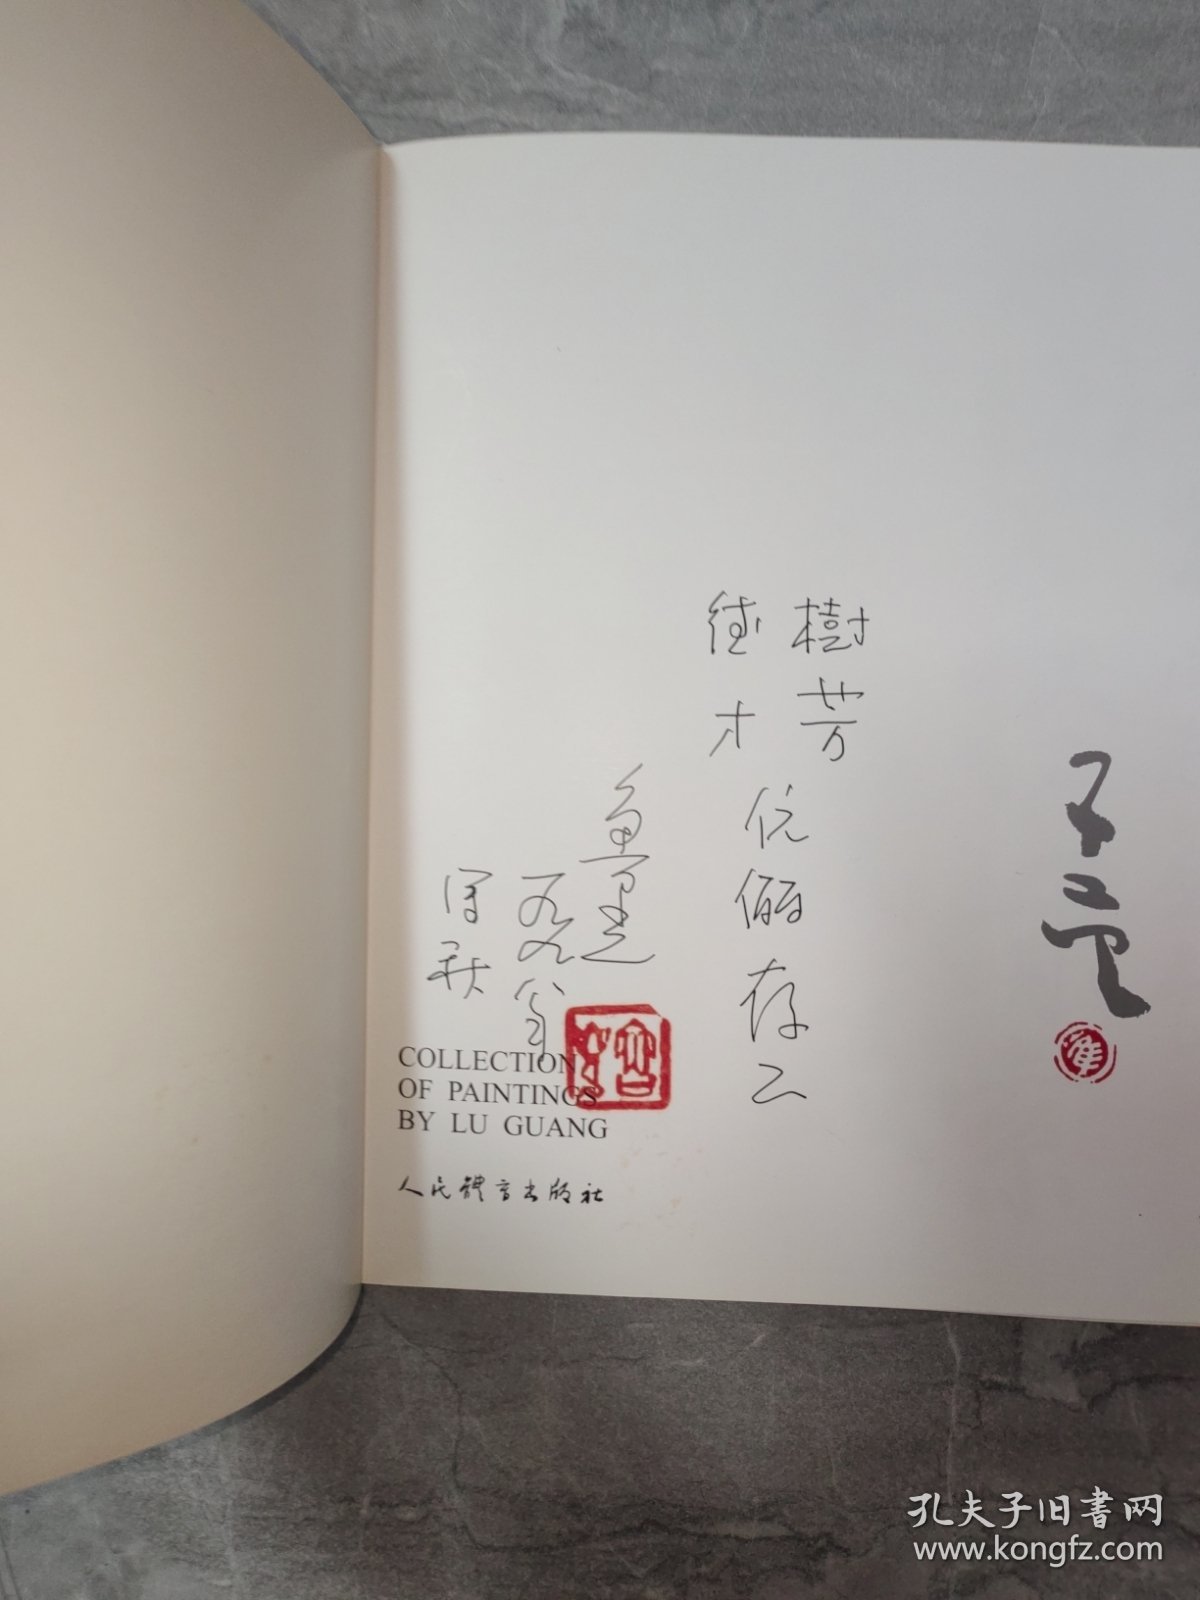 樹芳
德才
伉儷存正
魯光
一九九
深秋
COLLECTION
OF PAINTINGS
BY LU GUANG
人民體育出版社
孔夫子旧書网
www.kongfz.com